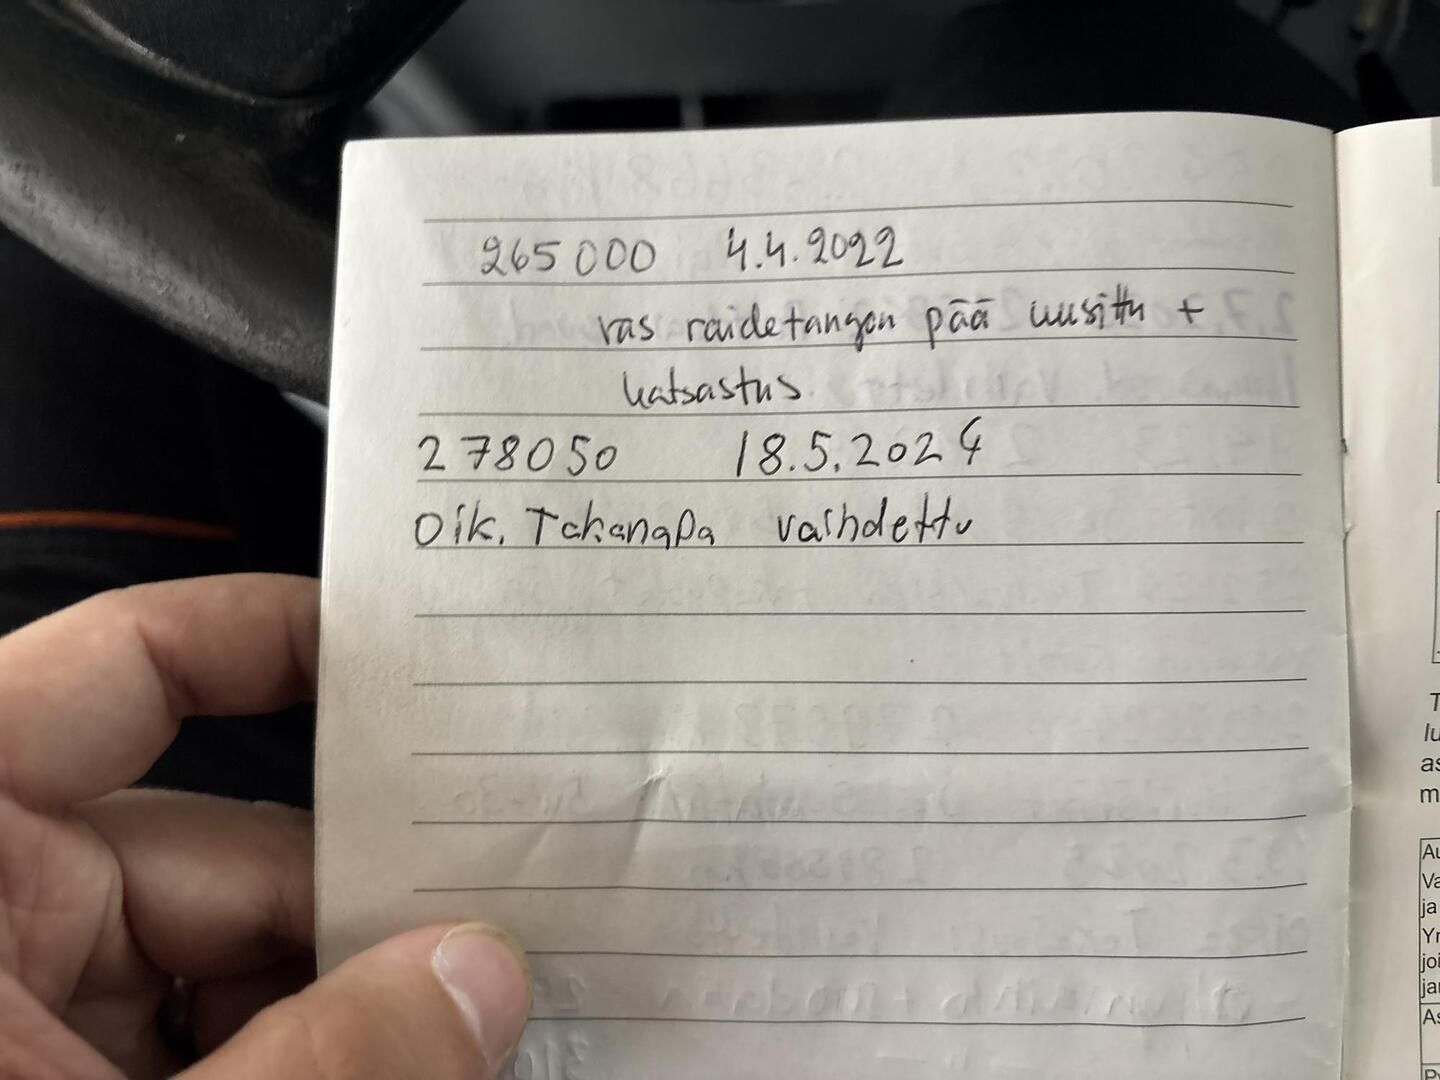 265000 4.4.2022
vas raidetangon pää uusittu +
katsastus
278050 18.5.2024
Oik. Takanapa vaihdettu
T
lu
as
m
Au
Va
ja
Yr
joi
jar
As